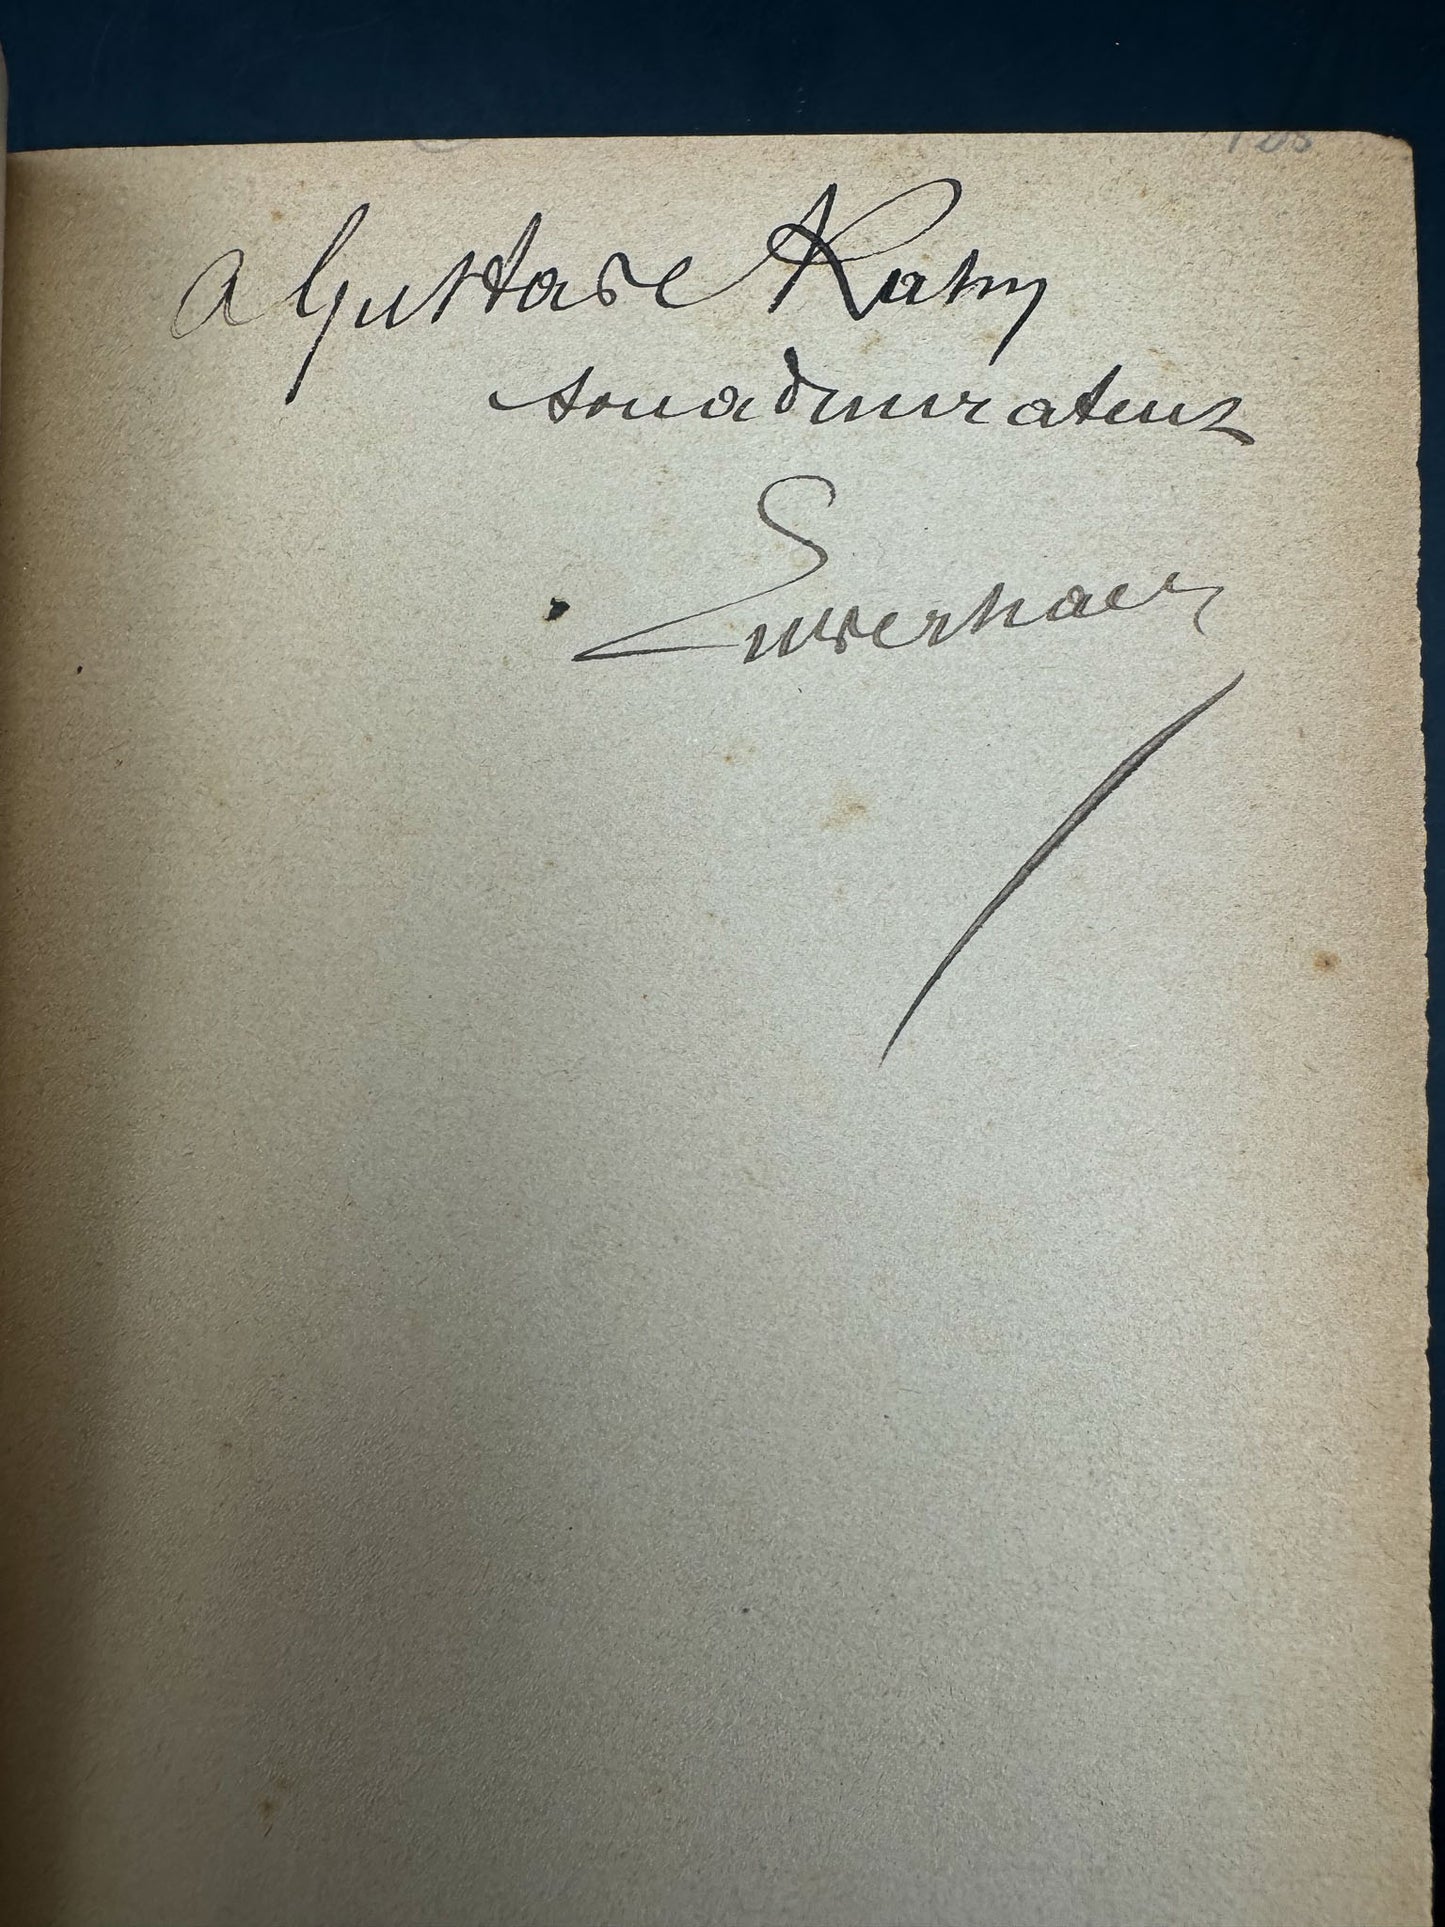 a Gustave Kahn
son admirateur
Em Verhaeren